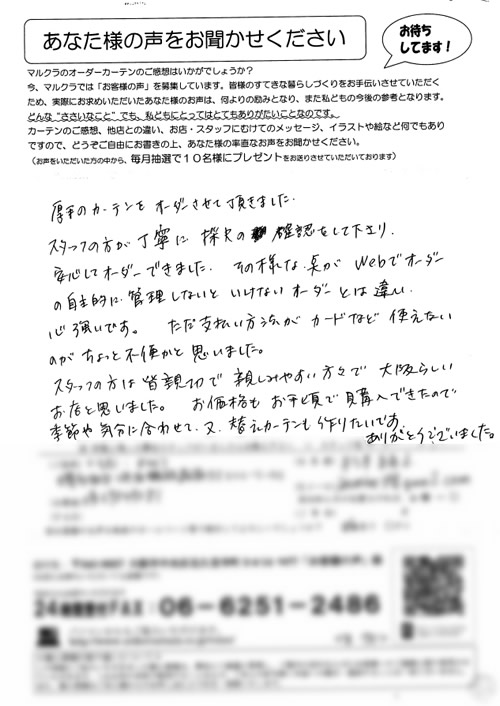 あなた様の声をお聞かせください
お待ち
してます！
マルクラのオーダーカーテンのご感想はいかがでしょうか？
今、マルクラでは「お客様の声」を募集しています。皆様のすてきな暮らしづくりをお手伝いさせていただく
ため、実際にお求めいただいたあなた様のお声は、何よりの励みとなり、また私どもの今後の参考となります。
どんな“ささいなこと”でも、私どもにとってはとてもありがたいことなのです。
カーテンのご感想、他店との違い、お店・スタッフにむけてのメッセージ、イラストや絵など何でもあり
ですので、どうぞご自由にお書きの上、あなた様の率直なお声をお聞かせください。
（お声をいただいた方の中から、毎月抽選で１０名様にプレゼントをお送りさせていただいております）
厚手のカーテンをオーダーさせて頂きました。
スタッフの方が丁寧に採寸の確認をして下さり、
安心してオーダーできました。その様な点がWebでオーダー
の自主的に管理しないといけないオーダーとは違い、
心強いです。ただ支払い方法がカードなど使えない
のがちょっと不便かと思いました。
スタッフの方は皆親切で親しみやすい方々で大阪らしい
お店と思いました。お価格もお手頃で購入できたので
季節や気分に合わせて、又、替えカーテンも作りたいです。
ありがとうございました。
06-6251-2486